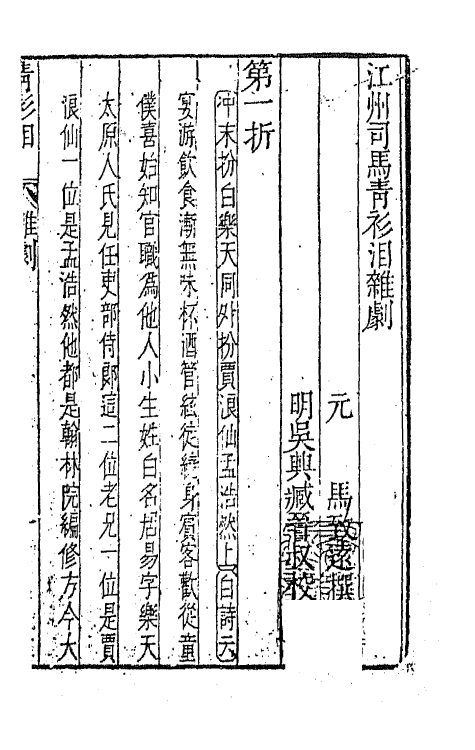 江州司馬青衫淚雜劇
元 馬致遠撰
明吳興臧晉叔校
第一折
冲末扮白樂天同外扮賈浪仙孟浩然上白詩云
宴游飲食漸無味杯酒管絃徒繞身賓客歡從童
僕喜始知官職為他人小生姓白名居易字樂天
太原人氏見任吏部侍郎這二位老兄一位是賈
浪仙一位是孟浩然他都是翰林院編修方今大
青衫泪 雜劇